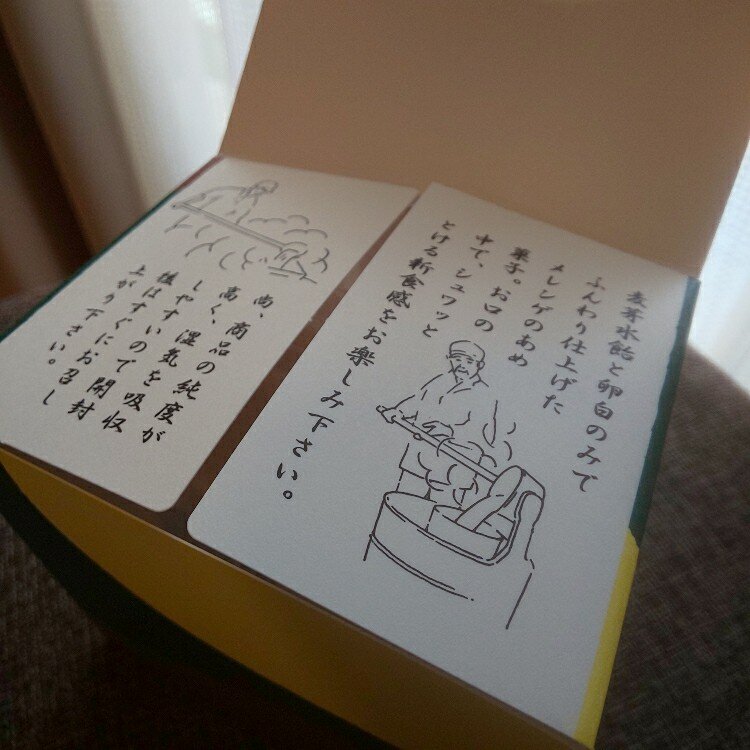 麦芽水飴と卵白のみで
ふんわり仕上げた
メレンゲのあめ
菓子。お口の
中で、シュワッと
とける新食感をお楽しみ下さい。
尚、商品の純度が
高く、湿気を吸収
しやすいので開封
後はすぐにお召し
上がり下さい。